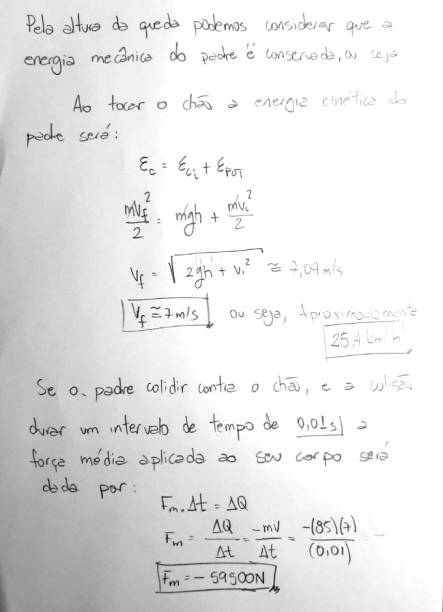 Pela altura da queda podemos considerar que a
energia mecânica do padre é conservada, ou seja
Ao tocar o chão a energia cinética do
padre será:
Ec = Eci + EPOT
mVf²/2 = mgh + mvi²/2
Vf = √(2gh + vi²) ≅ 7,04 m/s
Vf ≅ 7 m/s ou seja, Aproximadamente
25,4 km/h
Se o padre colidir contra o chão, e a colisão
durar um intervalo de tempo de 0,01s a
força média aplicada ao seu corpo será
dada por:
Fm.Δt = ΔQ
Fm = ΔQ/Δt = -mV/Δt = -(85)(7)/(0,01)
Fm = -59500N